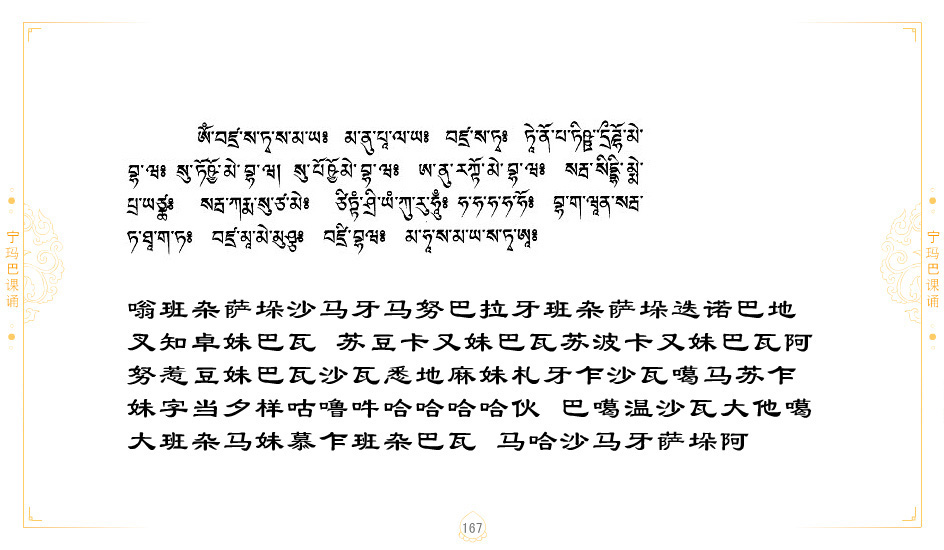 ཨོཾ་བཛྲ་ས་ཏྭ་ས་མ་ཡ༔ མ་ནུ་པཱ་ལ་ཡ༔ བཛྲ་ས་ཏྭ༔ ཏྭེ་ནོ་པ་ཏིཥྛ་དྲྀཌྷོ་མེ་
བྷ་ཝ༔ སུ་ཏོཥྱོ་མེ་བྷ་ཝ། སུ་པོཥྱོ་མེ་བྷ་ཝ༔ ཨ་ནུ་རཀྟོ་མེ་བྷ་ཝ༔ སརྦ་སིདྡྷི་མྨེ་
པྲ་ཡཙྪ༔ སརྦ་ཀརྨ་སུ་ཙ་མེ༔ ཙིཏྟཾ་ཤྲི་ཡཾ་ཀུ་རུ་ཧཱུྃ༔ ཧ་ཧ་ཧ་ཧ་ཧོ༔ བྷ་ག་ཝཱན་སརྦ་
ཏ་ཐཱ་ག་ཏ༔ བཛྲ་མཱ་མེ་མུཉྩ༔ བཛྲི་བྷ་ཝ༔ མ་ཧཱ་ས་མ་ཡ་ས་ཏྭ་ཨཱ༔
嗡班杂萨垛沙马牙马努巴拉牙班杂萨垛迭诺巴地
叉知卓妹巴瓦 苏豆卡又妹巴瓦苏波卡又妹巴瓦阿
努惹豆妹巴瓦沙瓦悉地麻妹札牙乍沙瓦噶马苏乍
妹字当夕样咕噜吽哈哈哈哈伙 巴噶温沙瓦大他噶
大班杂马妹慕乍班杂巴瓦 马哈沙马牙萨垛阿
宁玛巴课诵
宁玛巴课诵
167